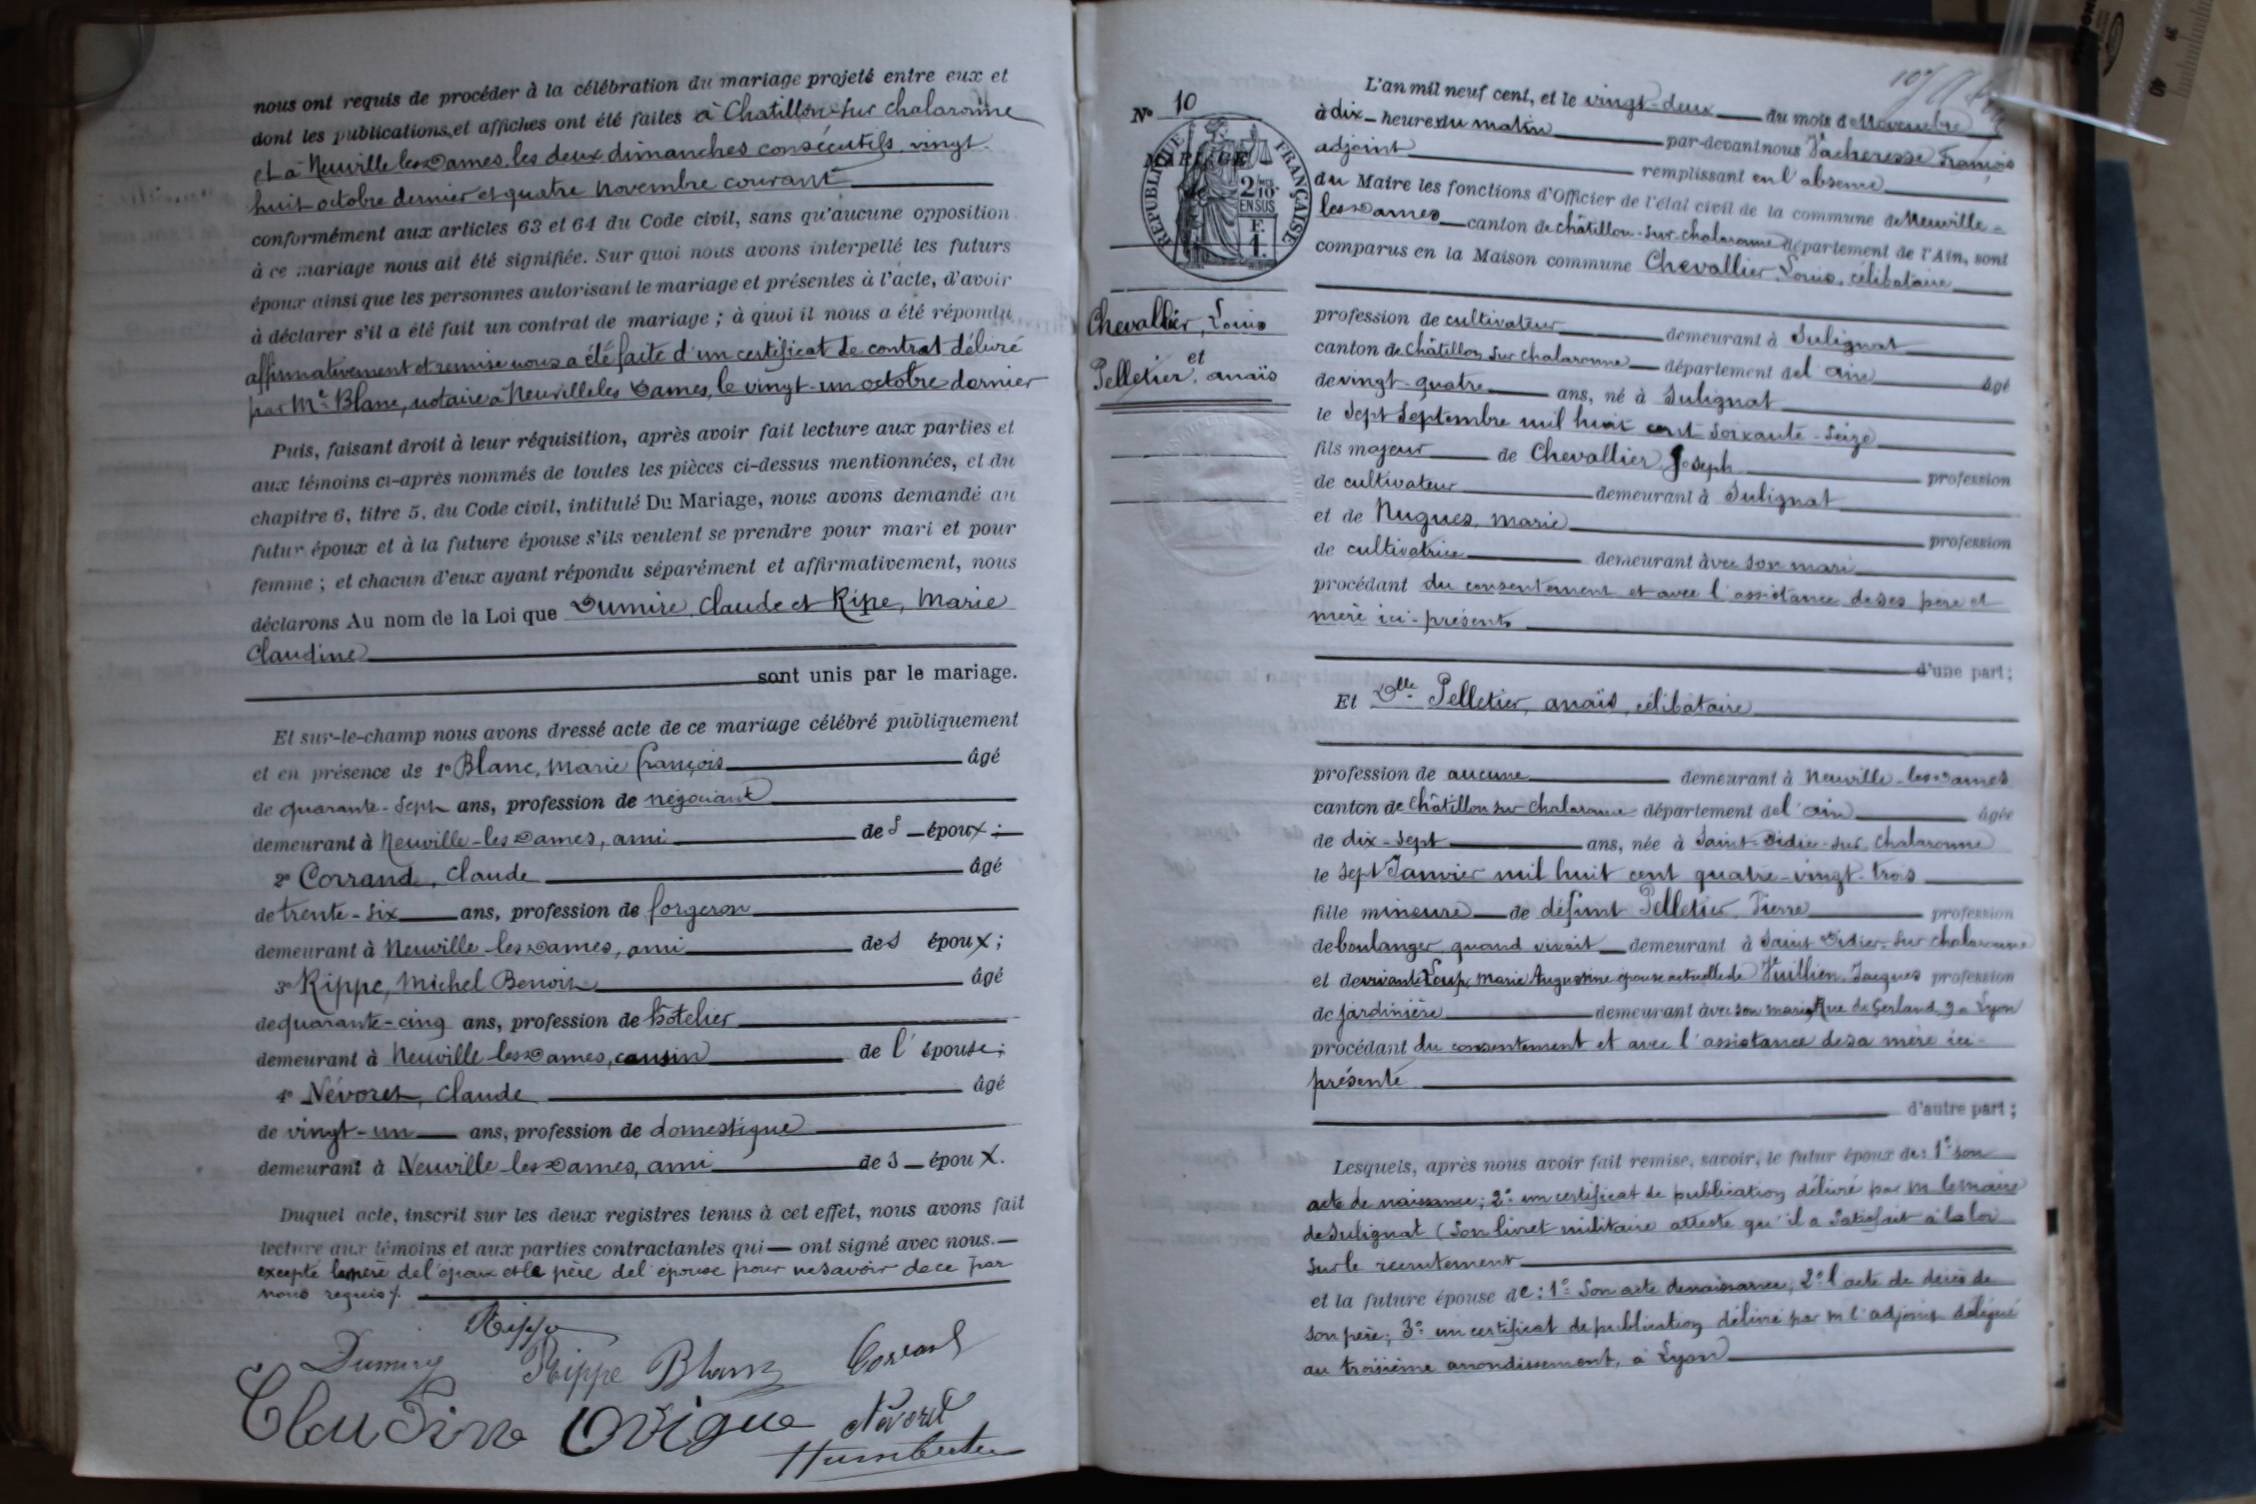 nous ont requis de procéder à la célébration du mariage projeté entre eux et
dont les publications et affiches ont été faites à Chatillon-sur chalaronne
et à Neuville les Dames, les deux dimanches consécutifs, vingt-
huit octobre dernier et quatre novembre courant
conformément aux articles 63 et 64 du Code civil, sans qu'aucune opposition
à ce mariage nous ait été signifiée. Sur quoi nous avons interpellé les futurs
époux ainsi que les personnes autorisant le mariage et présentes à l'acte, d'avoir
à déclarer s'il a été fait un contrat de mariage ; à quoi il nous a été répondu
affirmativement et remise nous a été faite d'un certificat de contrat délivré
par Me Blanc, notaire à Neuville les Dames, le vingt-un octobre dernier
Puis, faisant droit à leur réquisition, après avoir fait lecture aux parties et
aux témoins ci-après nommés de toutes les pièces ci-dessus mentionnées, et du
chapitre 6, titre 5, du Code civil, intitulé Du Mariage, nous avons demandé au
futur époux et à la future épouse s'ils veulent se prendre pour mari et pour
femme ; et chacun d'eux ayant répondu séparément et affirmativement, nous
déclarons Au nom de la Loi que Dumire, Claude et Ripe, Marie
Claudine
sont unis par le mariage.
Et sur-le-champ nous avons dressé acte de ce mariage célébré publiquement
et en présence de 1° Blanc, Marie françois âgé
de quarante-sept ans, profession de négociant
demeurant à Neuville-les Dames, ami des époux ;
2° Corrand, Claude âgé
de trente-six ans, profession de forgeron
demeurant à Neuville-les Dames, ami des époux ;
3° Rippe, Michel Benoit âgé
de quarante-cinq ans, profession de hôtelier
demeurant à Neuville-les Dames, cousin de l'épouse ;
4° Névoret, Claude âgé
de vingt-un ans, profession de domestique
demeurant à Neuville-les Dames, ami des époux.
Duquel acte, inscrit sur les deux registres tenus à cet effet, nous avons fait
lecture aux témoins et aux parties contractantes qui ont signé avec nous.
excepté la mère de l'époux et le père de l'épouse pour ne savoir de ce par
nous requis
Rippe
Rippe Blanc Corrand
Névoret
N° 10
MARIAGE
RÉPUBLIQUE FRANÇAISE
2/10
EN SUS
F.
1.
Chevallier, Louis
et
Pelletier, anaïs
L'an mil neuf cent, et le vingt-deux du mois de Novembre
à dix heures du matin par-devant nous Vacheresse François
adjoint remplissant en l'absence
du Maire les fonctions d'Officier de l'état civil de la commune de Neuville-
les Dames canton de châtillon-sur-chalaronne département de l'Ain, sont
comparus en la Maison commune Chevallier, Louis, célibataire
profession de cultivateur demeurant à Sulignat
canton de Châtillon sur chalaronne département de l'ain âgé
de vingt-quatre ans, né à Sulignat
le sept Septembre mil huit cent soixante-seize
fils majeur de Chevallier Joseph profession
de cultivateur demeurant à Sulignat
et de Nugues, marie profession
de cultivatrice demeurant avec son mari
procédant du consentement et avec l'assistance de ses père et
mère ici-présents
d'une part ;
Et Dlle Pelletier, anaïs, célibataire
profession de aucune demeurant à Neuville-les Dames
canton de Châtillon sur chalaronne département de l'ain âgée
de dix-sept ans, née à Saint-Didier-sur Chalaronne
le sept Janvier mil huit cent quatre-vingt-trois
fille mineure de défunt Pelletier, Pierre profession
de boulanger quand vivait demeurant à Saint Didier-sur chalaronne
et de vivante Loup, Marie Augustine épouse actuelle de Vuillien, Jacques profession
de jardinière demeurant avec son mari, Rue de Gerland, 9 à Lyon
procédant du consentement et avec l'assistance de sa mère ici-
présente
d'autre part ;
Lesquels, après nous avoir fait remise, savoir, le futur époux de : 1° son
acte de naissance ; 2° un certificat de publication délivré par m le maire
de Sulignat (son livret militaire atteste qu'il a satisfait à la loi
sur le recrutement
et la future épouse de : 1° son acte de naissance ; 2° l'acte de décès de
son père ; 3° un certificat de publication délivré par m l'adjoint délégué
au troisième arrondissement, à Lyon